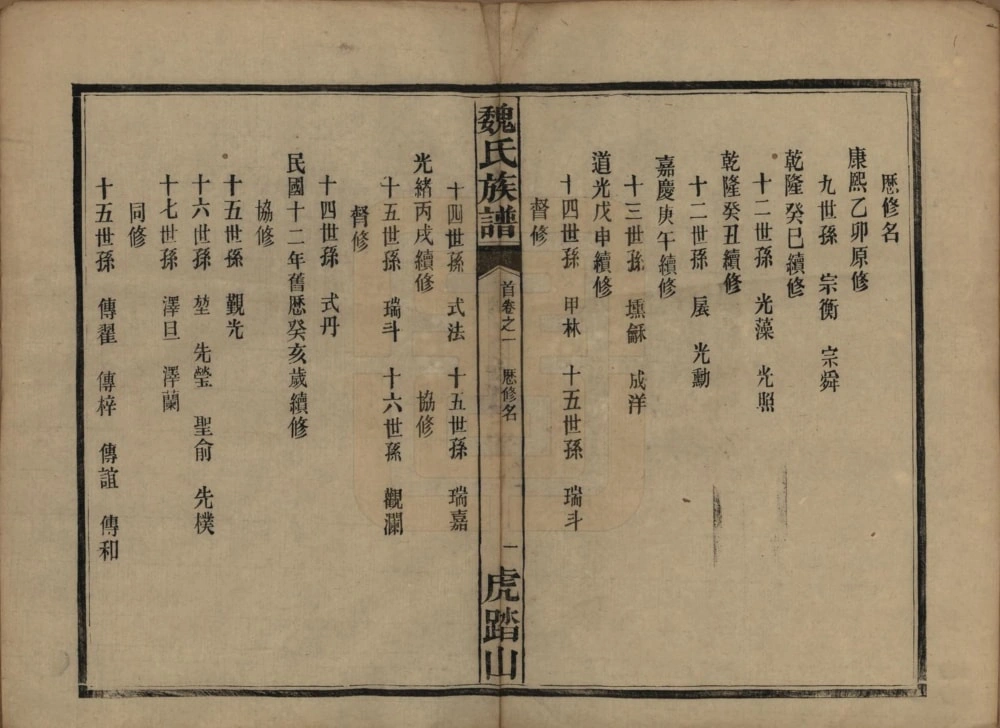 歷修名
康熙乙卯原修
九世孫 宗衡 宗舜
乾隆癸巳續修
十二世孫 光藻 光照
乾隆癸丑續修
十二世孫 扆 光勳
嘉慶庚午續修
十三世孫 壎龢 成洋
道光戊申續修
十四世孫 甲林 十五世孫 瑞斗
督修
魏氏族譜 首卷之一 歷修名 一 虎踏山
十四世孫 式法 十五世孫 瑞嘉
光緒丙戌續修 協修
十五世孫 瑞斗 十六世孫 觀瀾
督修
十四世孫 式丹
民國十二年舊歷癸亥歲續修
協修
十五世孫 觀光
十六世孫 堃 先瑩 聖俞 先樸
十七世孫 澤旦 澤蘭
同修
十五世孫 傳翟 傳梓 傳誼 傳和